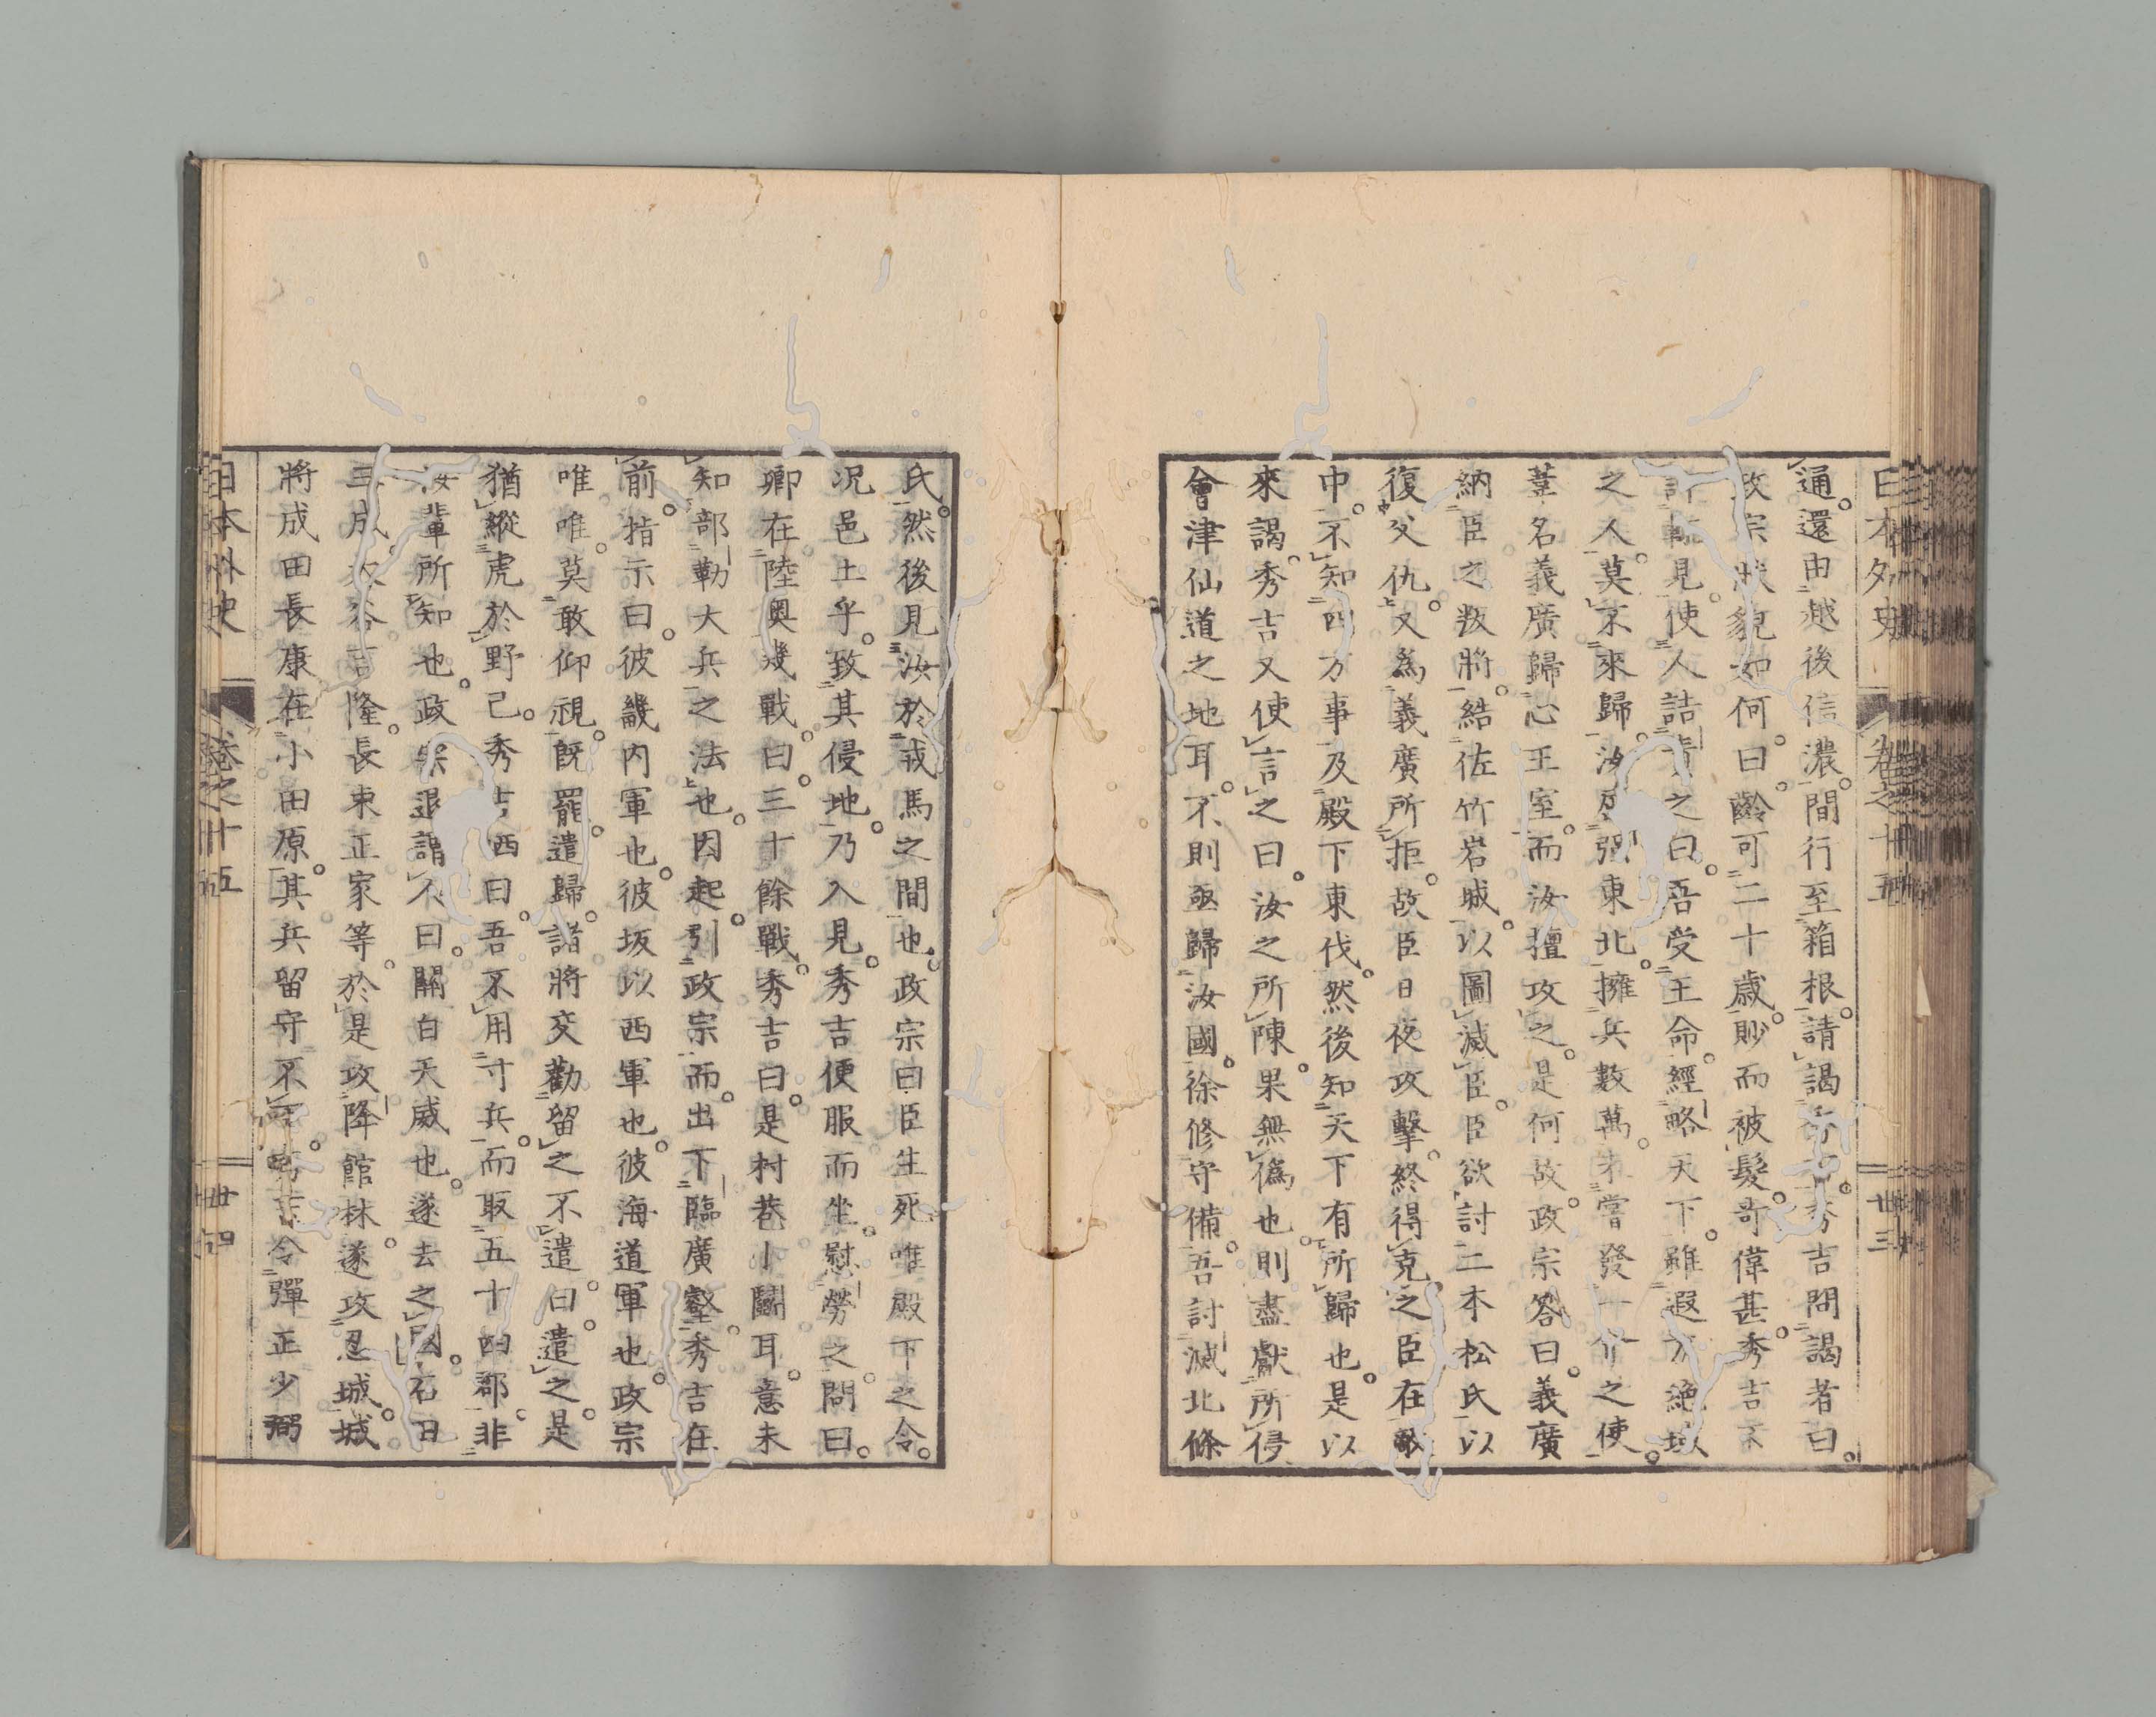 日本外史 卷之十五 廿三
通。還由越後信濃。間行至箱根。請謁秀吉。秀吉問謁者曰。
政宗狀貌如何。曰。齡可二十歲。眇而被髮。奇偉甚。秀吉不
許輒見。使人詰責之曰。吾受王命。經略天下。雖遐方絶域
之人。莫不來歸。汝居強東北。擁兵數萬。未嘗發一介之使。
葦名義廣歸心王室。而汝擅攻之。是何故。政宗答曰。義廣
納臣之叛將。結佐竹岩城。以圖滅臣。臣欲討二本松氏以
復父仇。又爲義廣所拒。故臣日夜攻擊。終得克之。臣在
中。不知四方事。及殿下東伐。然後知天下有所歸也。是以
來謁。秀吉又使言之曰。汝之所陳。果無僞也。則盡獻所侵
會津仙道之地耳。不則亟歸汝國。徐修守備。吾討滅北條
氏。然後見汝於戎馬之間也。政宗曰。臣生死唯殿下之令。
况邑土乎。致其侵地。乃入見。秀吉便服而坐。慰勞之。問曰。
卿在陸奥幾戰。曰。三十餘戰。秀吉曰。是村巷小鬭耳。意未
知部勒大兵之法也。因起。引政宗而出。下臨廣壑。秀吉在
前。指示曰。彼畿内軍也。彼坂以西軍也。彼海道軍也。政宗
唯唯。莫敢仰視。既罷。遣歸。諸將交勸留之不遣。曰。遣之。是
猶縱虎於野已。秀吉哂曰。吾不用寸兵。而取五十四郡。非
汝輩所知也。政宗退謂人曰。關白天威也。遂去之國。石田
三成。大谷吉隆。長束正家等。於是攻降館林。遂攻忍城。城
將成田長康在小田原。其兵留守不下。秀吉令彈正少弼
日本外史 卷之十五 廿四